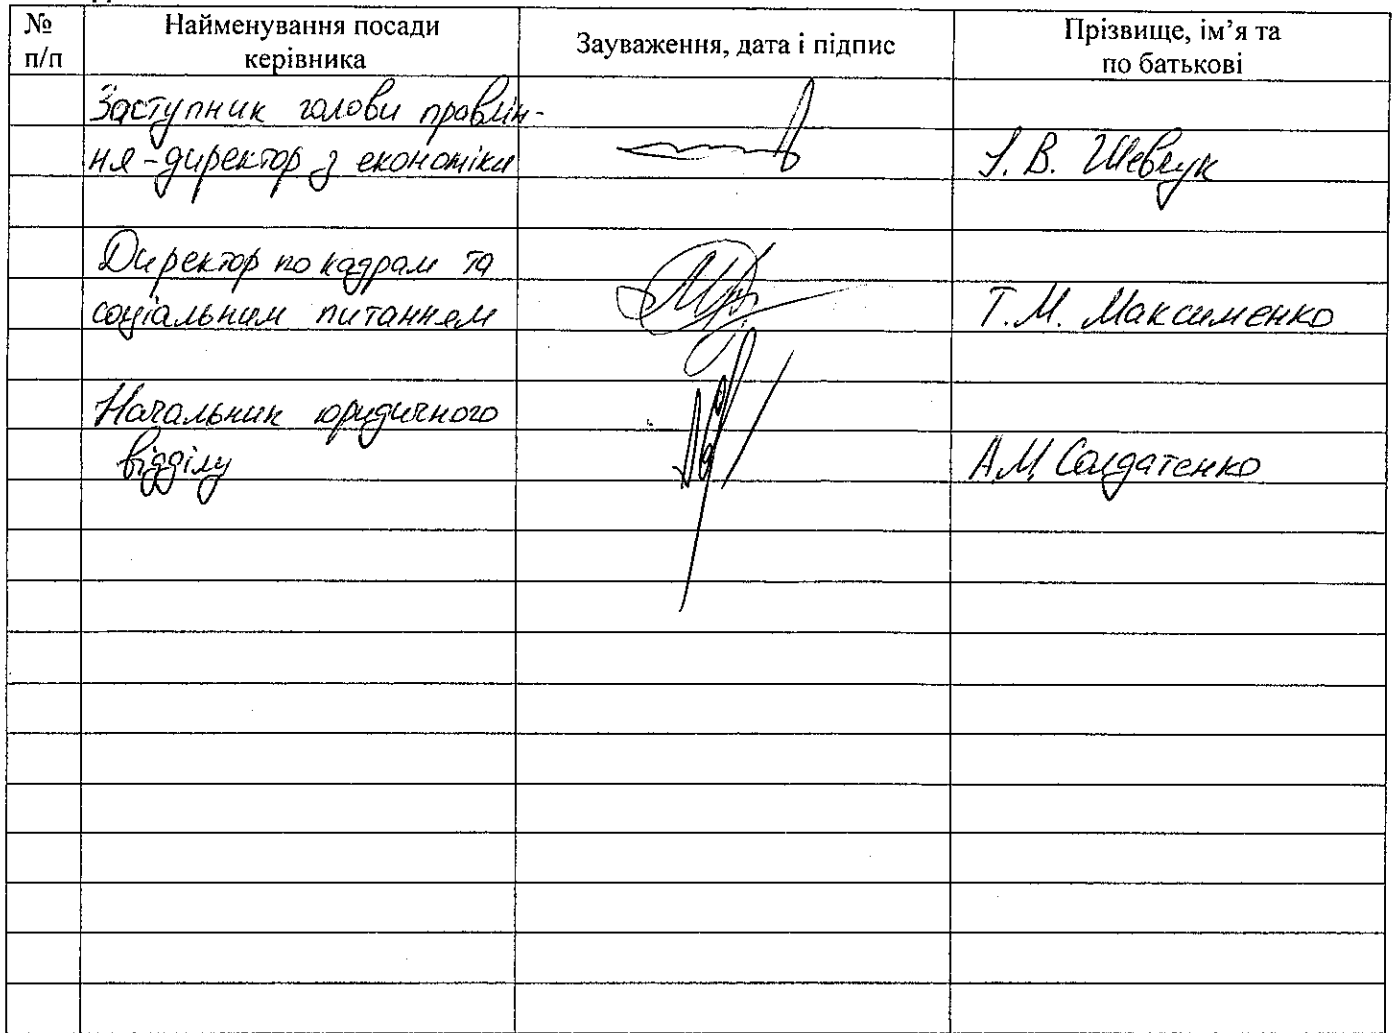 №
п/п
Найменування посади
керівника
Зауваження, дата і підпис
Прізвище, ім’я та
по батькові
Заступник голови правлін-
ня-директор з економіки
І. В. Шевчук
Директор по кадрам та
соціальним питанням
Т. М. Максименко
Начальник юридичного
відділу
А.М. Солдатенко